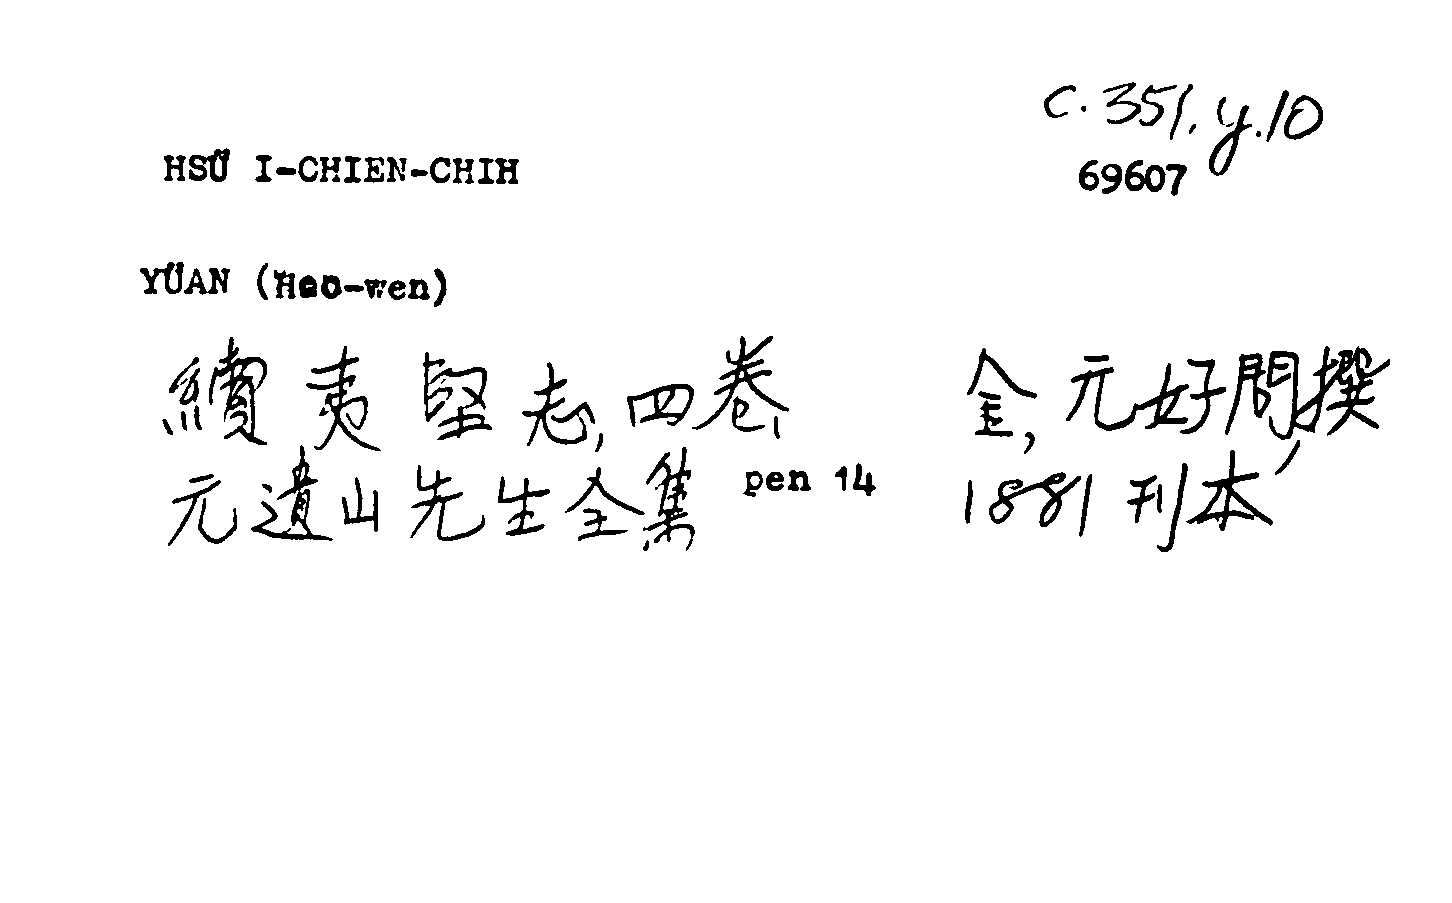 C.351.y.10
HSÜ I-CHIEN-CHIH
69607
YÜAN (Hao-wen)
續夷堅志,四卷, 金,元好問撰,
元遺山先生全集 pen 14 1881刊本